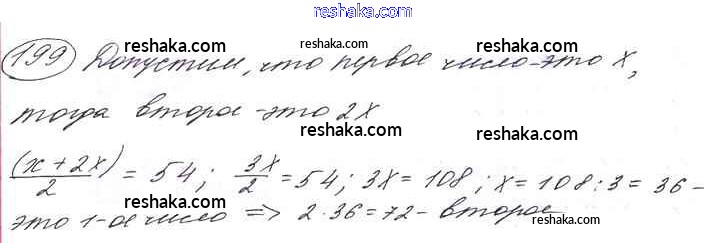 reshaka.com
199 Допустим, что первое число-это x,
reshaka.com reshaka.com reshaka.com
тогда второе -это 2x
reshaka.com
(x+2x)/2 = 54; 3x/2 = 54; 3x = 108; x = 108:3 = 36 -
reshaka.com reshaka.com
это 1-ое число => 2·36=72- второе
reshaka.com reshaka.com reshaka.com